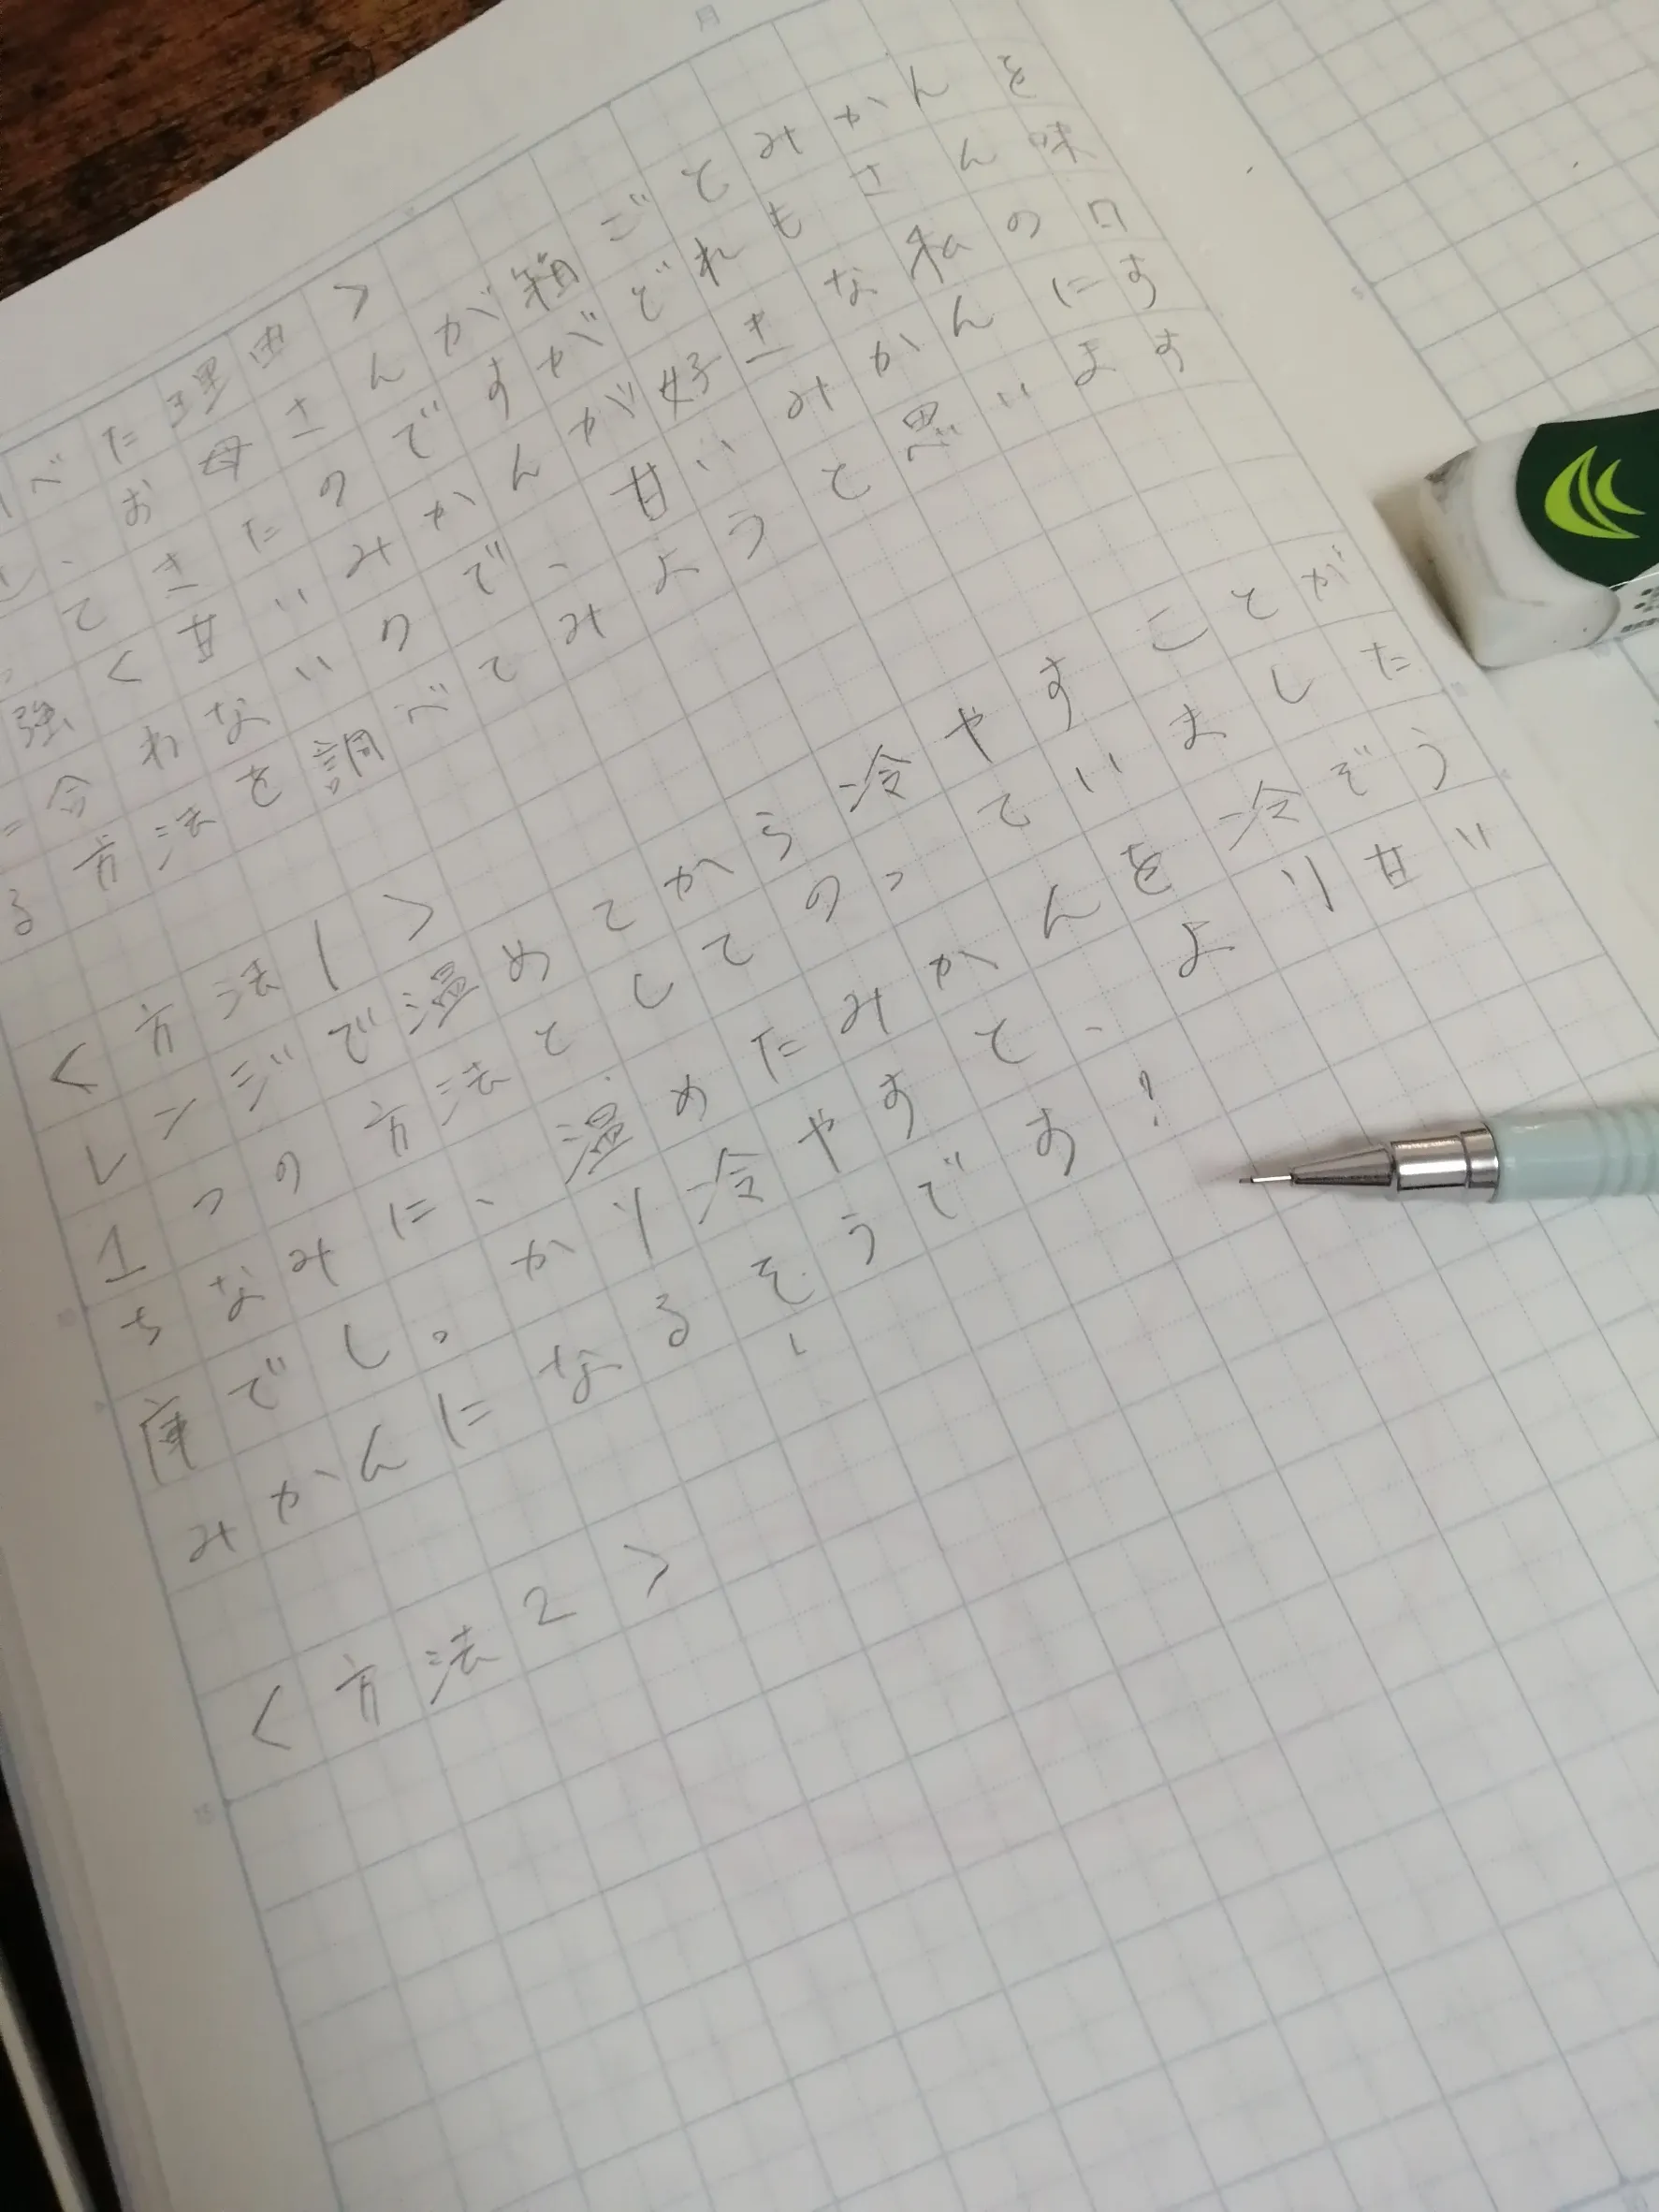 べた理由>
、お母さんが箱ごとみかんを
てきたのですがどれもさん味
強く甘いみかんが好きな私の口
合わないので、甘いみかんにす
る方法を調べてみようと思います
<方法1>
レンジで温めてから冷やすことが
1つの方法としてのっていました
ちなみに、温めたみかんを冷ぞう
庫でしっかり冷やすと、より甘い
みかんになるそうです!
<方法2>